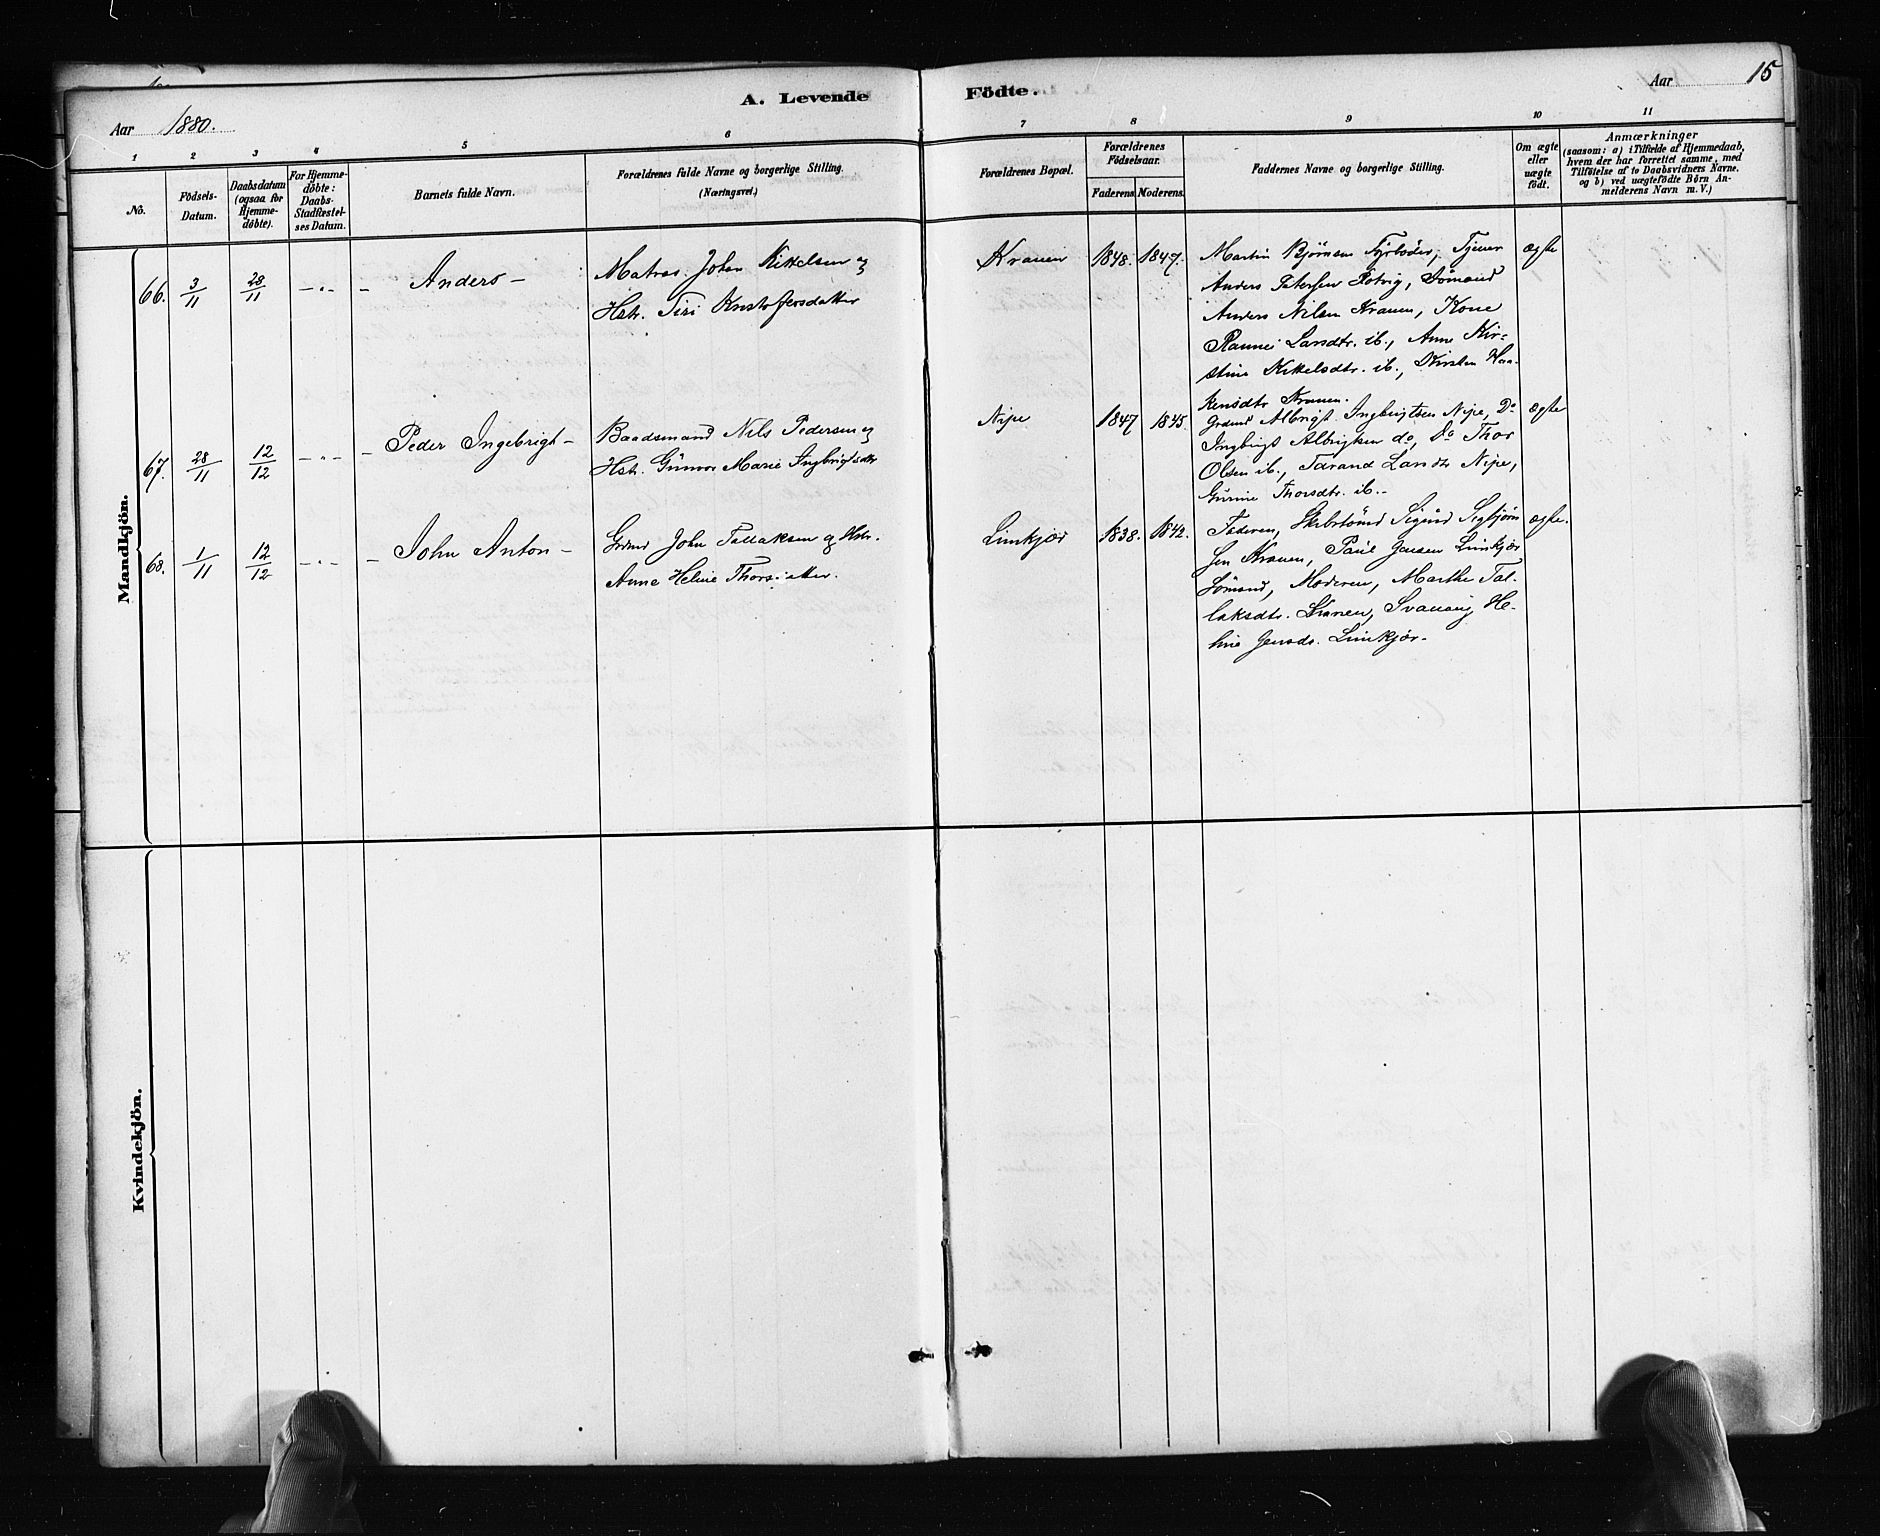 A. Levende Födte.
Aar 1880.
Aar 15
1 2 3 4 5 6 7 8 9 10 11
No.
Födsels-
Datum.
Daabsdatum
(ogsaa for
Hjemme-
döbte).
For Hjemme-
döbte:
Daabs-
Stadfæstel-
ses Datum.
Barnets fulde Navn.
Forældrenes fulde Navne og borgerlige Stilling.
(Næringsvei.)
Forældrenes Bopæl.
Forældrenes
Födselsaar.
Faderens. Moderens.
Faddernes Navne og borgerlige Stilling.
Om ægte
eller
uægte
födt.
Anmærkninger
(saasom: a) i Tilfælde af Hjemmedaab,
hvem der har forrettet samme, med
Tilföielse af to Daabsvidners Navne.
og b) ved uægtefödte Börn An-
melderens Navn m. V.)
Mandkjön.
66. 3/11 28/11 -"- - Anders -
Matros. John Kittelsen og
Hstr. Siri Kristofersdatter
Kranen 1848. 1847.
Martin Bjørnsen Fyrbøder, Tjener
Anders Petersen Potvig, Sömand
Anders Nilsen Kranen, Kone
Rannei Larsdtr. ib., Anne Kir-
stine Kittelsdtr. ib., Kirsten Haa-
kensdtr Kranen.
ægte
67. 28/11 12/12 -"- - Peder Ingebrigt -
Baadsmand Nils Pedersen og
Hstr. Gunvor Marie Ingbrigtsdtr
Nipe 1847 1845.
Grdmd Albrigt Ingbrigtsen Nipe, Do
Ingbrigt Albrigtsen do, Do Thor
Olsen ib., Tarand Larsdtr Nipe,
Gurine Thorsdtr. ib. -
ægte
68. 1/11 12/12 -"- - John Anton -
Grdmd John Tallaksen og Hstr.
Anne Heline Thorsdatter.
Limkjær 1838. 1842.
Faderen, Skibstömd Sigurd Sigbjörn
sen Kranen, Paul Jensen Limkjær
Sömand, Moderen, Marthe Tal-
laksdtr. Kranen, Svanaug He-
line Jensdr. Limkjær -
ægte.
Kvindekjön.